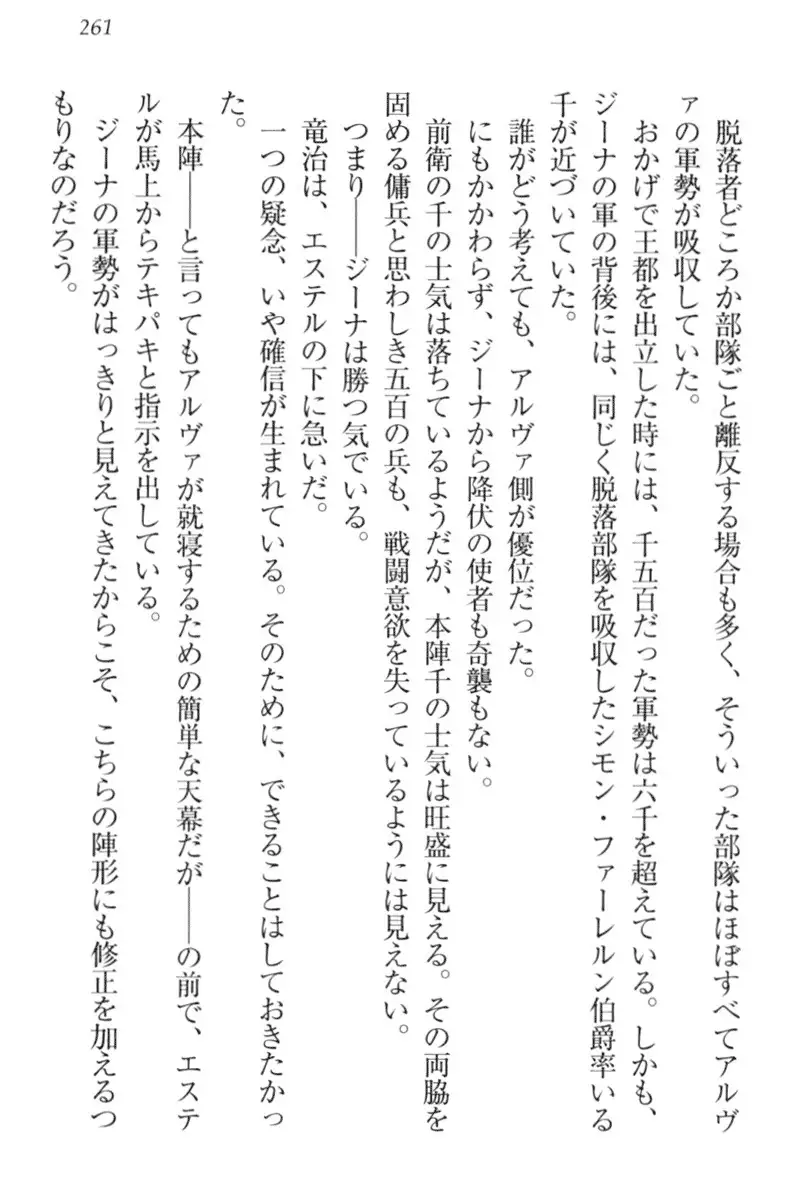 261
脱落者どころか部隊ごと離反する場合も多く、そういった部隊はほぼすべてアルヴ
ァの軍勢が吸収していた。
おかげで王都を出立した時には、千五百だった軍勢は六千を超えている。しかも、
ジーナの軍の背後には、同じく脱落部隊を吸収したシモン・ファーレルン伯爵率いる
千が近づいていた。
誰がどう考えても、アルヴァ側が優位だった。
にもかかわらず、ジーナから降伏の使者も奇襲もない。
前衛の千の士気は落ちているようだが、本陣千の士気は旺盛に見える。その両脇を
固める傭兵と思わしき五百の兵も、戦闘意欲を失っているようには見えない。
つまり――ジーナは勝つ気でいる。
竜治は、エステルの下に急いだ。
一つの疑念、いや確信が生まれている。そのために、できることはしておきたかっ
た。
本陣――と言ってもアルヴァが就寝するための簡単な天幕だが――の前で、エステ
ルが馬上からテキパキと指示を出している。
ジーナの軍勢がはっきりと見えてきたからこそ、こちらの陣形にも修正を加えるつ
もりなのだろう。